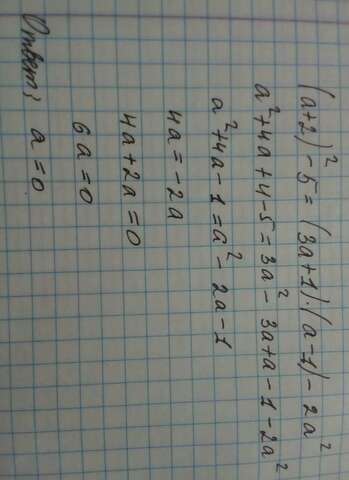 (a+2)² - 5 = (3a+1)·(a-1) - 2a²
a²+4a+4-5=3a²-3a+a-1-2a²
a²+4a-1=a²-2a-1
4a=-2a
4a+2a=0
6a=0
Ответ: a=0